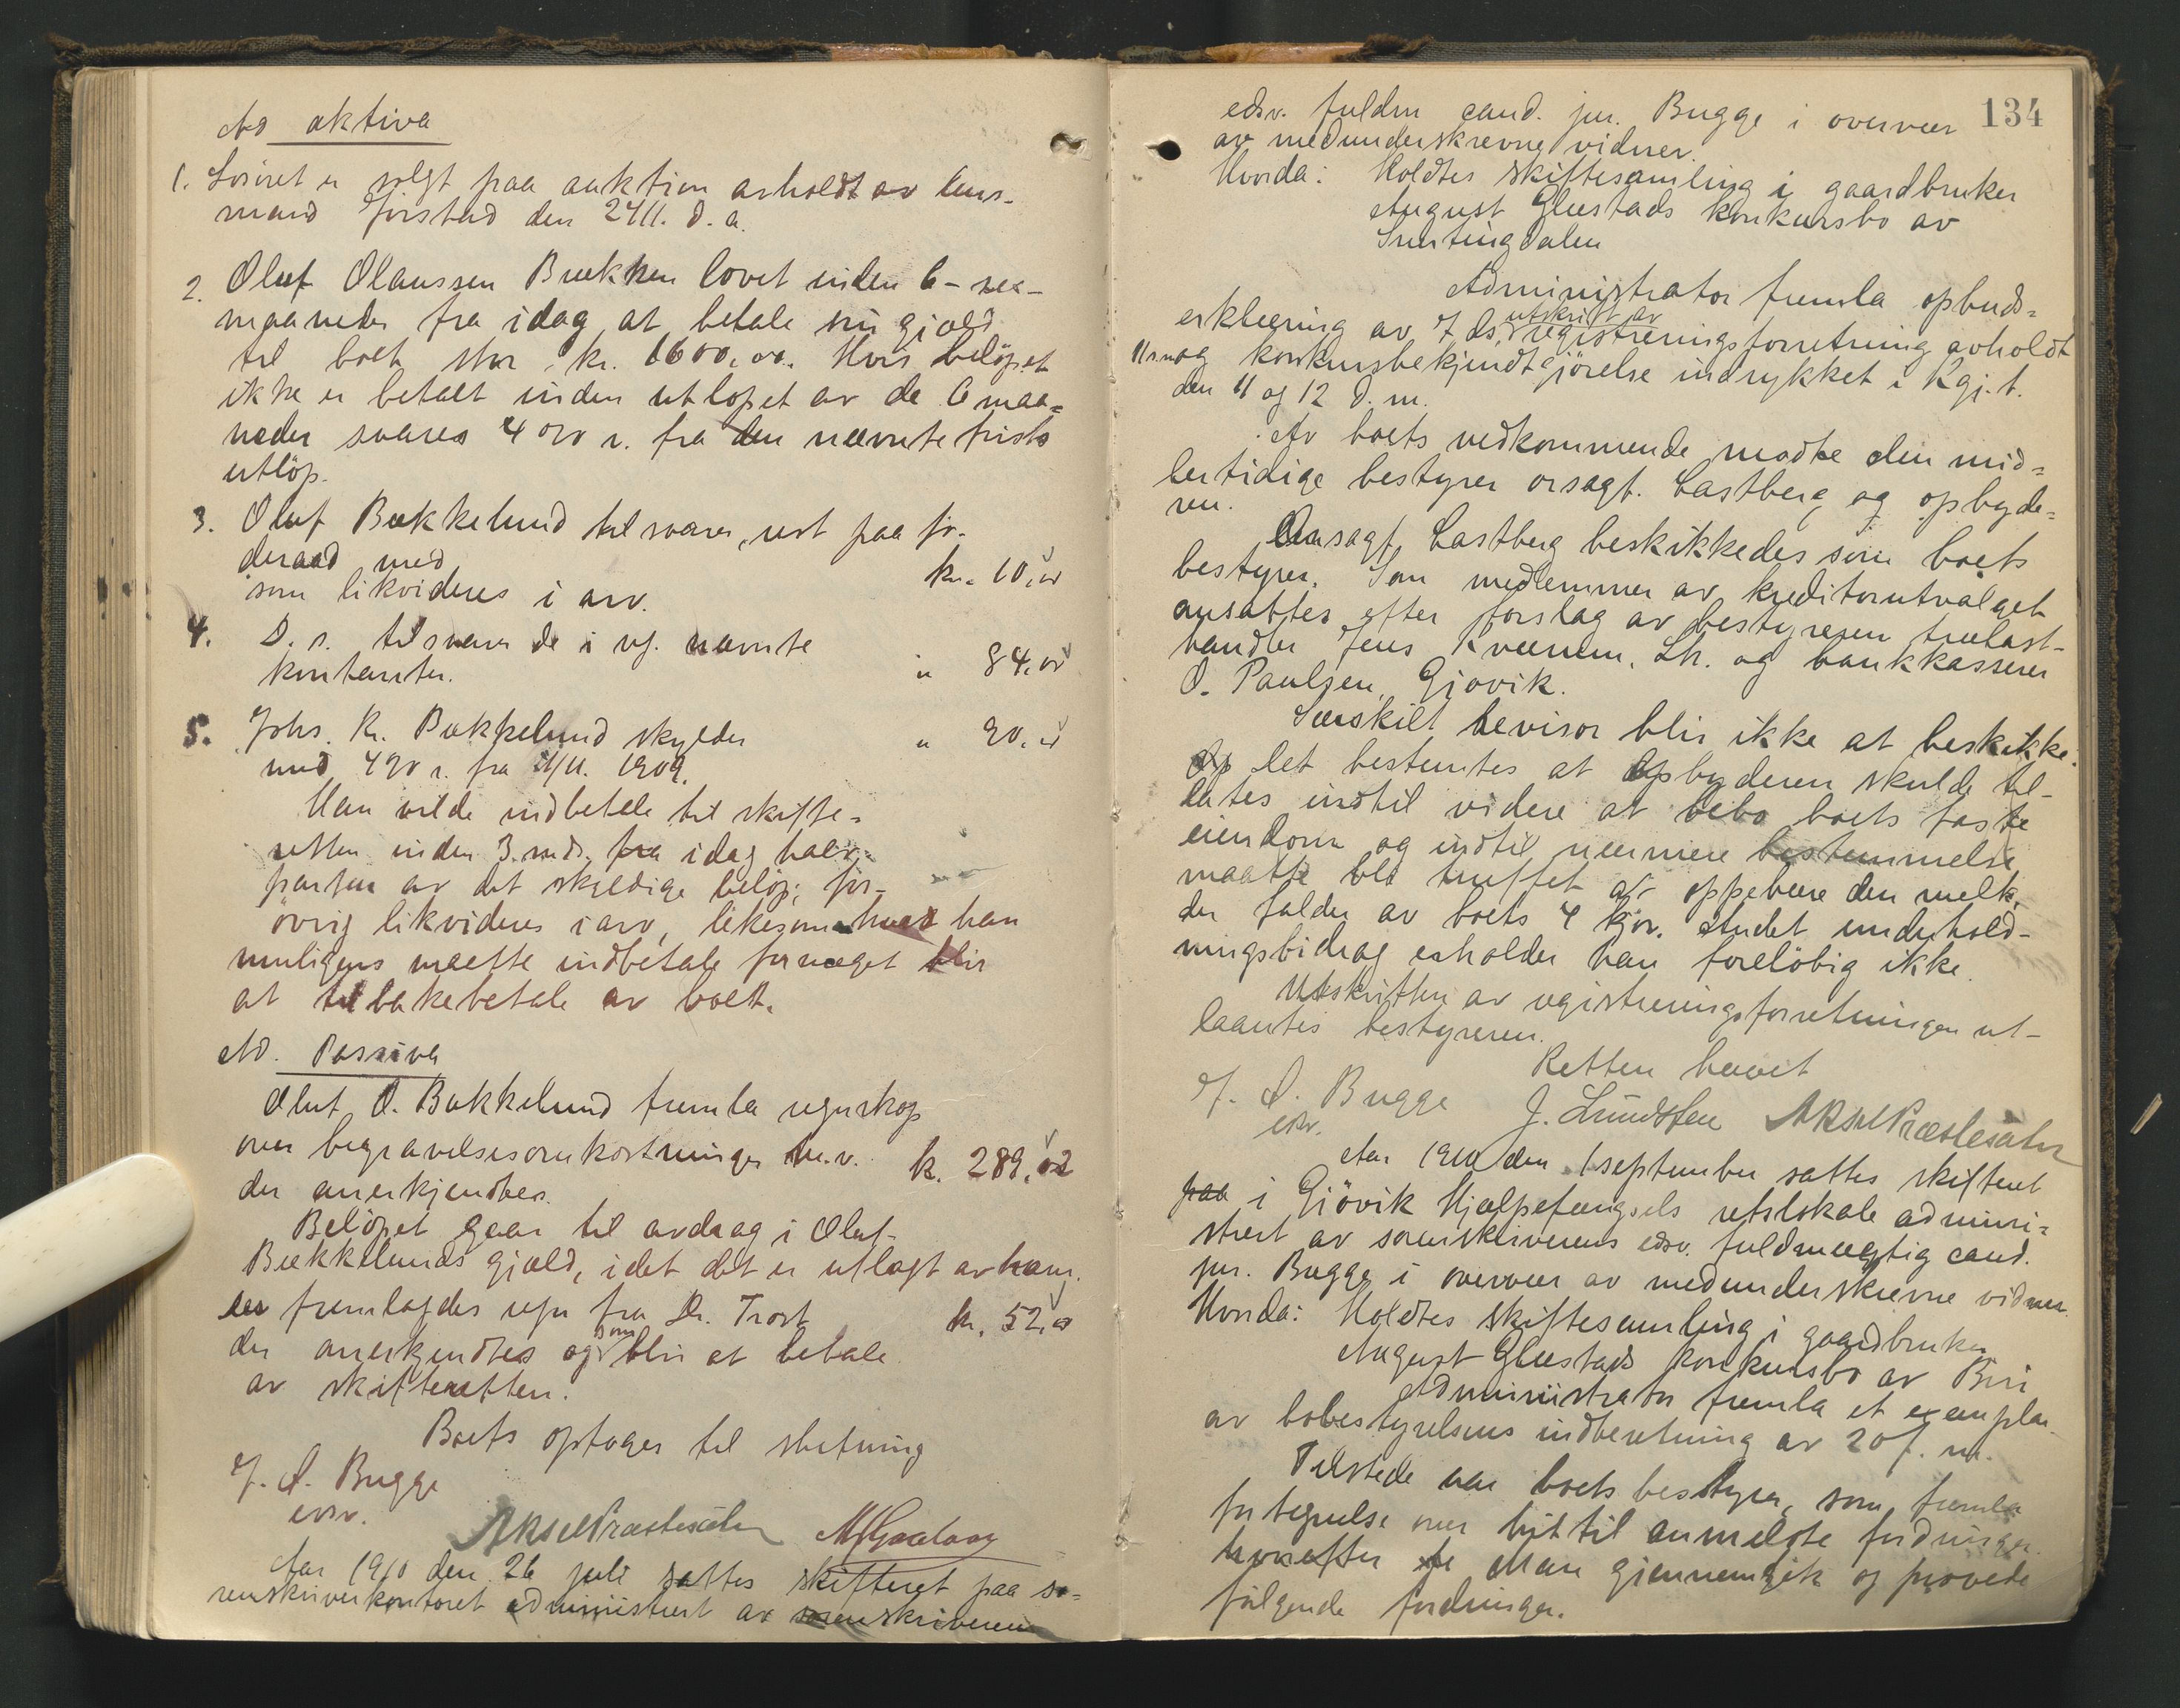 Ad aktiva
1. Lösöret er solgt paa auktion avholdt av lens-
mand Fjirstad den 24/11. d. a.
2. Oluf Olaussen Brækken lovet inden 6 - sex -
maaneder fra idag at betale sin gjæld
til boet stor kr. 1600,00. Hvis belöpet
ikke er betalt inden utlöpet av de 6 maa=
neder svares 4 % r. fra den nævnte frists
utlöp.
3. Oluf Bækkelund tilsvarer, rest paa fö-
deraad med kr. 10,00
som likvideres i arv.
4. D. s. tilsvarer de i rf. nævnte
kontanter. " 84,00
5. Johs. K. Bækkelund skylder " 90,00
med 4 % r. fra 11/11. 1909.
Han vilde indbetale til skifte=
retten inden 3 mdr. fra idag halv=
parten av det skyldige belöp; for-
övrig likvideres i arv, likesom hvad han
muligens maatte indbetale formeget blir
at tilbakebetale av boet.
Ad. Passiva
Oluf O. Bækkelund fremla regnskap
over begravelsesomkostninger m.v. kr. 289,02
der anerkjendtes.
Belöpet gaar til avdrag i Oluf
Bækkelunds gjæld, idet det er utlagt av ham.
fremlagdes regn fra Dr. Trost kr. 52,00
der anerkjendtes og som blir at betale
av skifteretten.
Boets optages til slutning
J. A. Bugge
edsv. Aksel Præstesæter
Aar 1910 den 26 juli sattes skifteret paa so=
renskriverkontoret administrert av sorenskriverens
134
edsv. fuldm cand. jur. Bugge i overvær
av medunderskrevne vidner.
Hvorda: Holdtes skiftesamling i gaardbruker
August Glæstads konkursbo av
Snertingdalen
Administrator fremla opbuds=
erklæring av 7 ds, utskrift av registreringsforretning avholdt
11 s.m og konkursbekjendtgjörelse indrykket i Kgj.t.
den 11 og 12 d. m.
Av boets vedkommende mödte den mid=
lertidige bestyrer orsagf. Castberg og opbyde=
ren.
Orsagf. Castberg beskikkedes som boets
bestyrer. Som medlemmer av kreditorutvalget
ansattes efter forslag av bestyreren trælast-
handler Jens Kværnum, Lh. og bankkasserer
O. Paulsen, Gjøvik.
Særskilt revisor blir ikke at beskikke.
Det bestemtes at opbyderen skulde til-
lates indtil videre at bebo boets faste
eiendom og indtil nærmere bestemmelse
maatte bli truffet at oppebære den melk,
der falder av boets 4 kjør. Andet underhold-
ningsbidrag erholder han foreløbig ikke.
Utskriften av registreringsforretningen ut-
laantes bestyreren.
Retten hævet
J. A. Bugge J. Lundsten Aksel Præstesæter
edsv.
Aar 1910 den 1 september sattes skifteret
paa i Gjövik Hjælpefængsels retslokale admini=
strert av sorenskriverens edsv. fuldmægtig cand.
jur. Bugge i overvær av medunderskrevne vidner.
Hvorda: Holdtes skiftesamling i gaardbruker
August Glæstads konkursbo av Biri
Administrator fremla et exemplar
av bobestyrelsens indberetning av 20 f. m.
Tilstede var boets bestyrer, som fremla
fortegnelse over hittil anmeldte fordringer.
hvorefter Man gjennemgik og prøvede
følgende fordringer.